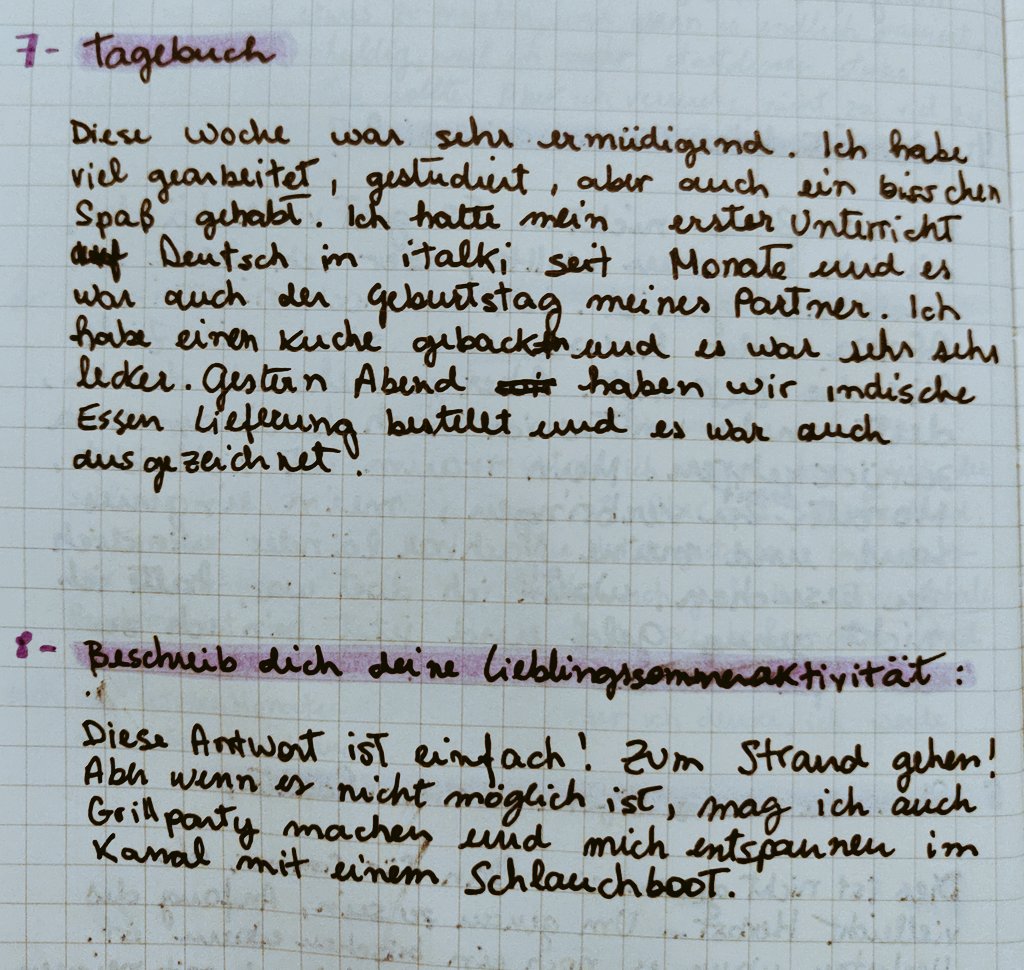 7- Tagebuch
Diese Woche war sehr ermüdigend. Ich habe
viel gearbeitet, gestudiert, aber auch ein bisschen
Spaß gehabt. Ich hatte mein erster Unterricht
Deutsch in italki seit Monate und es
war auch der Geburtstag meines Partner. Ich
habe einen Kuche gebacken und es war sehr sehr
lecker. Gestern Abend haben wir indische
Essen Lieferung bestellt und es war auch
ausgezeichnet.
8- Beschreib dich deine Lieblingssommeraktivität:
Diese Antwort ist einfach! Zum Strand gehen!
Aber wenn es nicht möglich ist, mag ich auch
Grillparty machen und mich entspannen im
Kanal mit einem Schlauchboot.